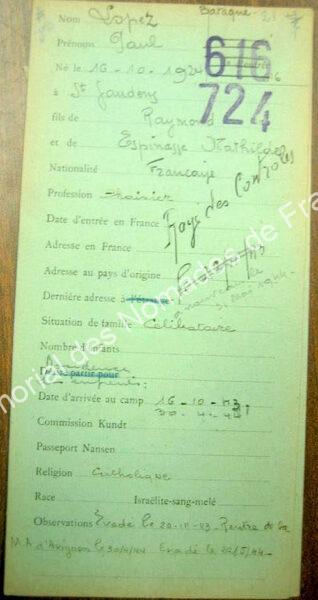 Nom Lopez Baraque 21
Prénoms Paul
616
724
Né le 16-10-1924
à St Gaudens
fils de Raymond
et de Espinasse Mathilde
Nationalité Française
Profession chaisier
Rayé des Contrôles
Date d'entrée en France
Adresse en France
Adresse au pays d'origine
Dernière adresse à
Situation de famille Célibataire
Nombre d'enfants
Résidence
partir pour
enfants:
Date d'arrivée au camp 16-10-43
30-4-44
Commission Kundt
Passeport Nansen
Religion Catholique
Race Israëlite-sang-melé
Observations Évadé le 20-11-43 - Rentré de la
M A d'Avignon le 30/4/44 Evadé le 26/5/44-
morial des Nomades de Fra